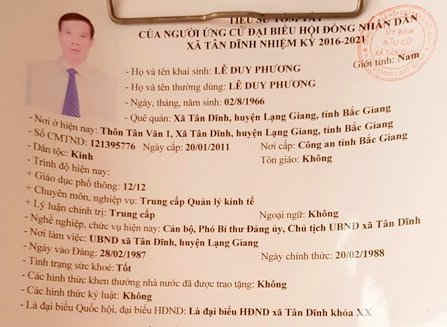 TIỂU SỬ TÓM TẮT
CỦA NGƯỜI ỨNG CỬ ĐẠI BIỂU HỘI ĐỒNG NHÂN DÂN
XÃ TÂN DĨNH NHIỆM KỲ 2016-2021
- Họ và tên khai sinh: LÊ DUY PHƯƠNG Giới tính: Nam
- Họ và tên thường dùng: LÊ DUY PHƯƠNG
- Ngày, tháng, năm sinh: 02/8/1966
- Quê quán: Xã Tân Dĩnh, huyện Lạng Giang, tỉnh Bắc Giang
- Nơi ở hiện nay: Thôn Tân Văn 1, Xã Tân Dĩnh, huyện Lạng Giang, tỉnh Bắc Giang
- Số CMTND: 121395776 Ngày cấp: 20/01/2011 Nơi cấp: Công an tỉnh Bắc Giang
- Dân tộc: Kinh Tôn giáo: Không
- Trình độ hiện nay:
+ Giáo dục phổ thông: 12/12
+ Chuyên môn, nghiệp vụ: Trung cấp Quản lý kinh tế
+ Lý luận chính trị: Trung cấp Ngoại ngữ: Không
- Nghề nghiệp, chức vụ hiện nay: Cán bộ, Phó Bí thư Đảng ủy, Chủ tịch UBND xã Tân Dĩnh
- Nơi làm việc: UBND xã Tân Dĩnh, huyện Lạng Giang
- Ngày vào Đảng: 28/02/1987 Ngày chính thức: 20/02/1988
- Tình trạng sức khoẻ: Tốt
- Các hình thức khen thưởng nhà nước đã được trao tặng: Không
- Các hình thức kỷ luật: Không
- Là đại biểu Quốc hội, đại biểu HĐND: Là đại biểu HĐND xã Tân Dĩnh khóa XX